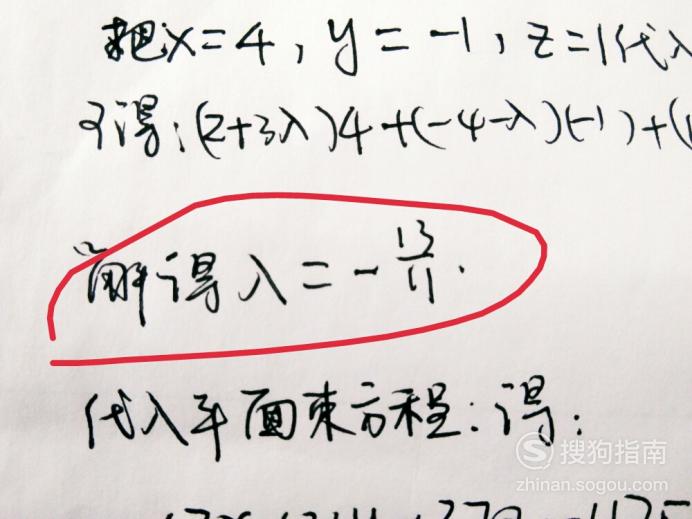 把x=4,y=-1,z=1代入
可得:(2+3λ)4+(-4-λ)(-1)+(1
解得λ=-13/11.
代入平面束方程:得:
搜狗指南
zhinan.sogou.com